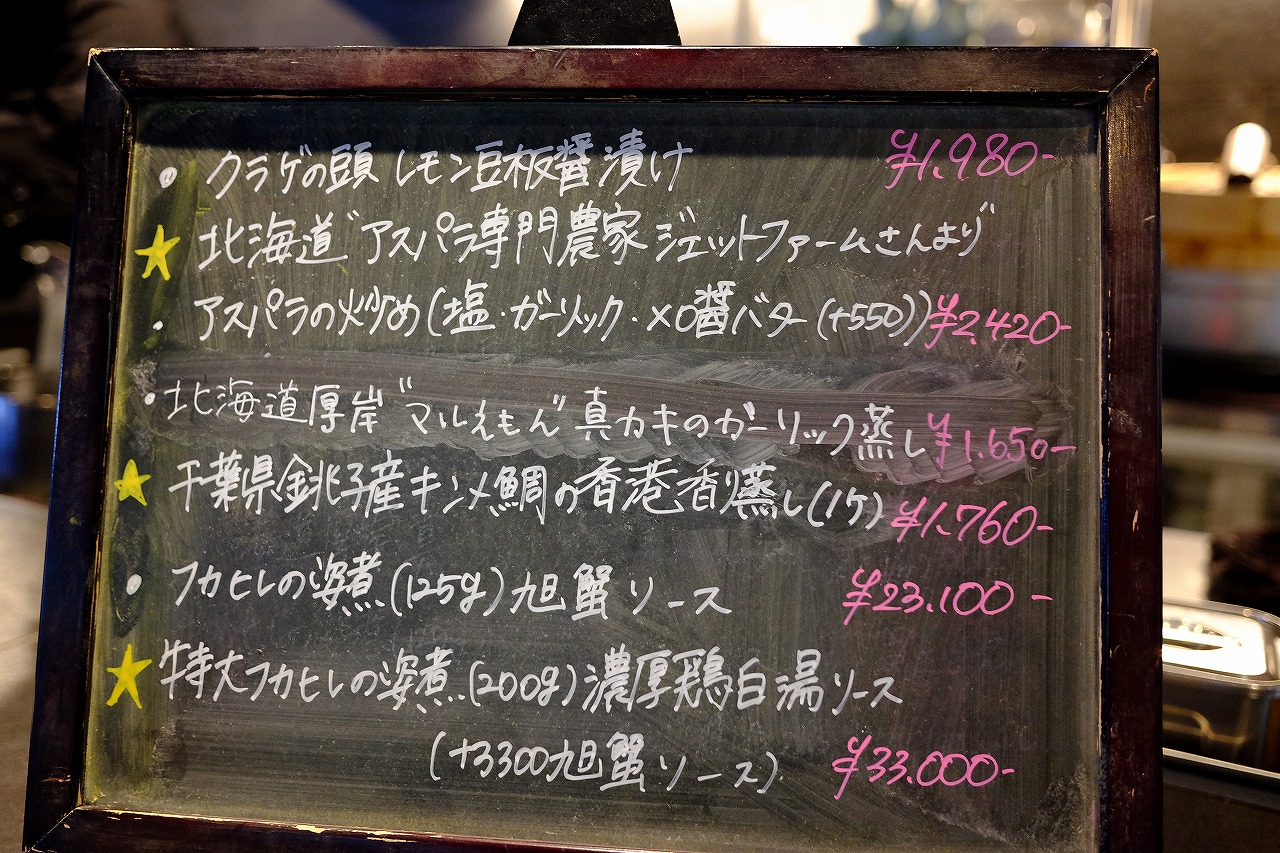 ・クラゲの頭 レモン豆板醤漬け ¥1,980-
★北海道"アスパラ専門農家ジェットファームさんより"
・アスパラの炒め(塩・ガーリック・XO醤バター(+550)) ¥2,420-
・北海道厚岸"マルえもん"真カキのガーリック蒸し ¥1.650-
★千葉県銚子産キンメ鯛の香港香り蒸し(1ケ) ¥1,760-
・フカヒレの姿煮(125g)旭蟹ソース ¥23.100-
★特大フカヒレの姿煮.(200g)濃厚鶏白湯ソース
(+3300旭蟹ソース) ¥33.000-